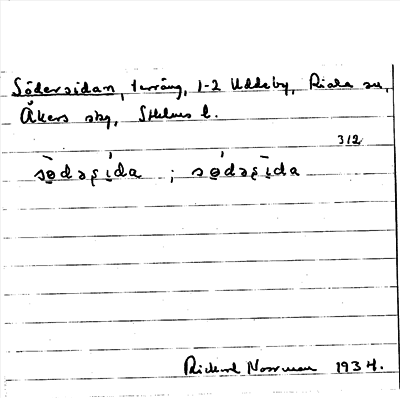 Södersidan, terräng, 1-2 Uddeby, Riala sn,
Åkers skg, Sthlms l.
312
sø̀dəʂi̍da ; sø̍dəʂi̠da
Rickard Norrman 1934.